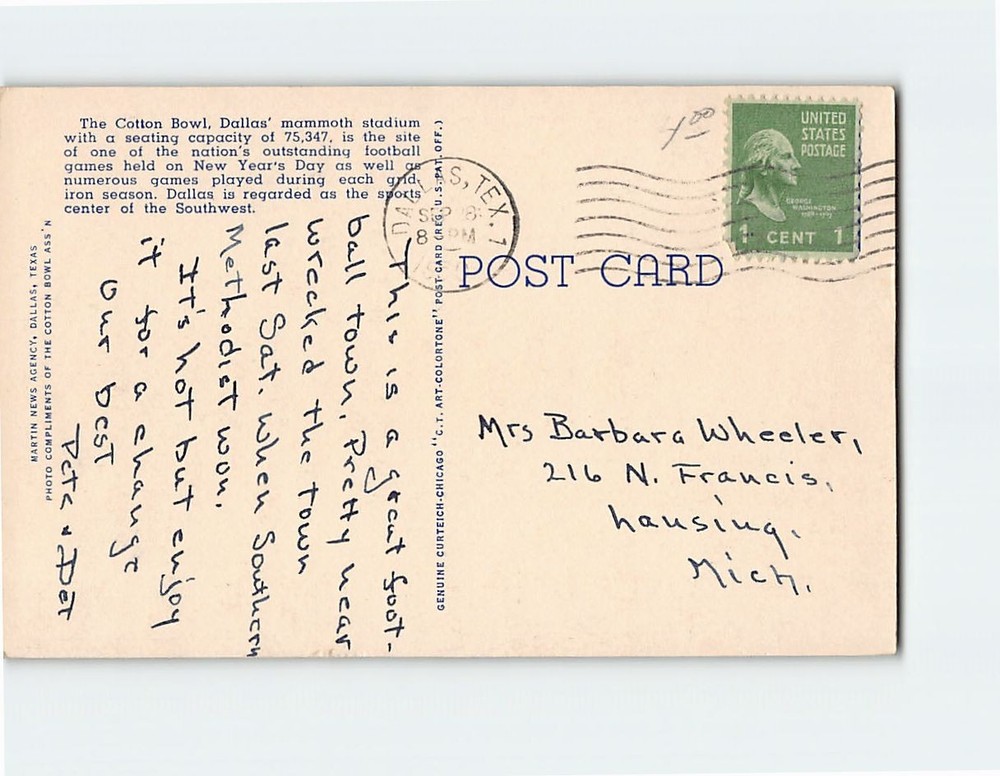 The Cotton Bowl, Dallas' mammoth stadium
with a seating capacity of 75,347, is the site
of one of the nation's outstanding football
games held on New Year's Day as well as
numerous games played during each grid-
iron season. Dallas is regarded as the sports
center of the Southwest.
MARTIN NEWS AGENCY, DALLAS, TEXAS
PHOTO COMPLIMENTS OF THE COTTON BOWL ASS'N
This is a great foot-
ball town. Pretty near
wrecked the town
last Sat. when Southern
Methodist won.
It's hot but enjoy
it for a change
Our best
Pete & Det
GENUINE CURTEICH-CHICAGO "C.T. ART-COLORTONE" POST CARD (REG. U.S. PAT. OFF.)
DALLAS, TEX. 1
SEP 18
8 PM
4 00
UNITED
STATES
POSTAGE
GEORGE
WASHINGTON
1 CENT 1
POST CARD
Mrs Barbara Wheeler,
216 N. Francis,
Lansing,
Mich.